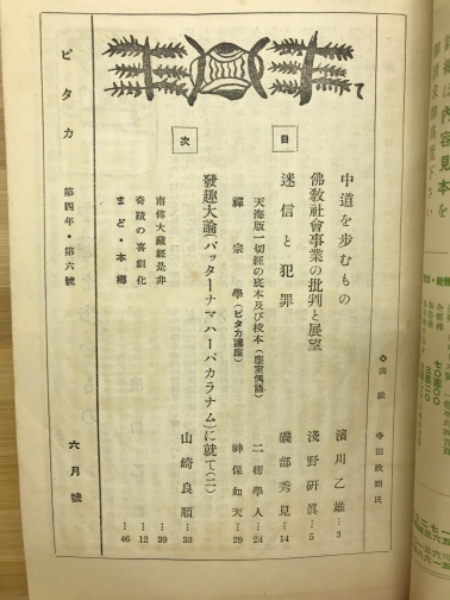 目次
◇表紙　寺田政明氏
中道を歩むもの　濱川乙雄…3
佛敎社會事業の批判と展望　淺野硏眞…5
迷信と犯罪　磯部秀見…14
天海版一切經の底本及び校本（塵室偶語）　二楞學人…24
禪宗學（ピタカ講座）　神保如天…29
發趣大論（パッターナマハーパカラナム）に就て（二）　山崎良順…33
南傳大藏經是非…39
奇蹟の喜劇化…12
まど・本鄕…46
ピタカ　第四年・第六號　六月號